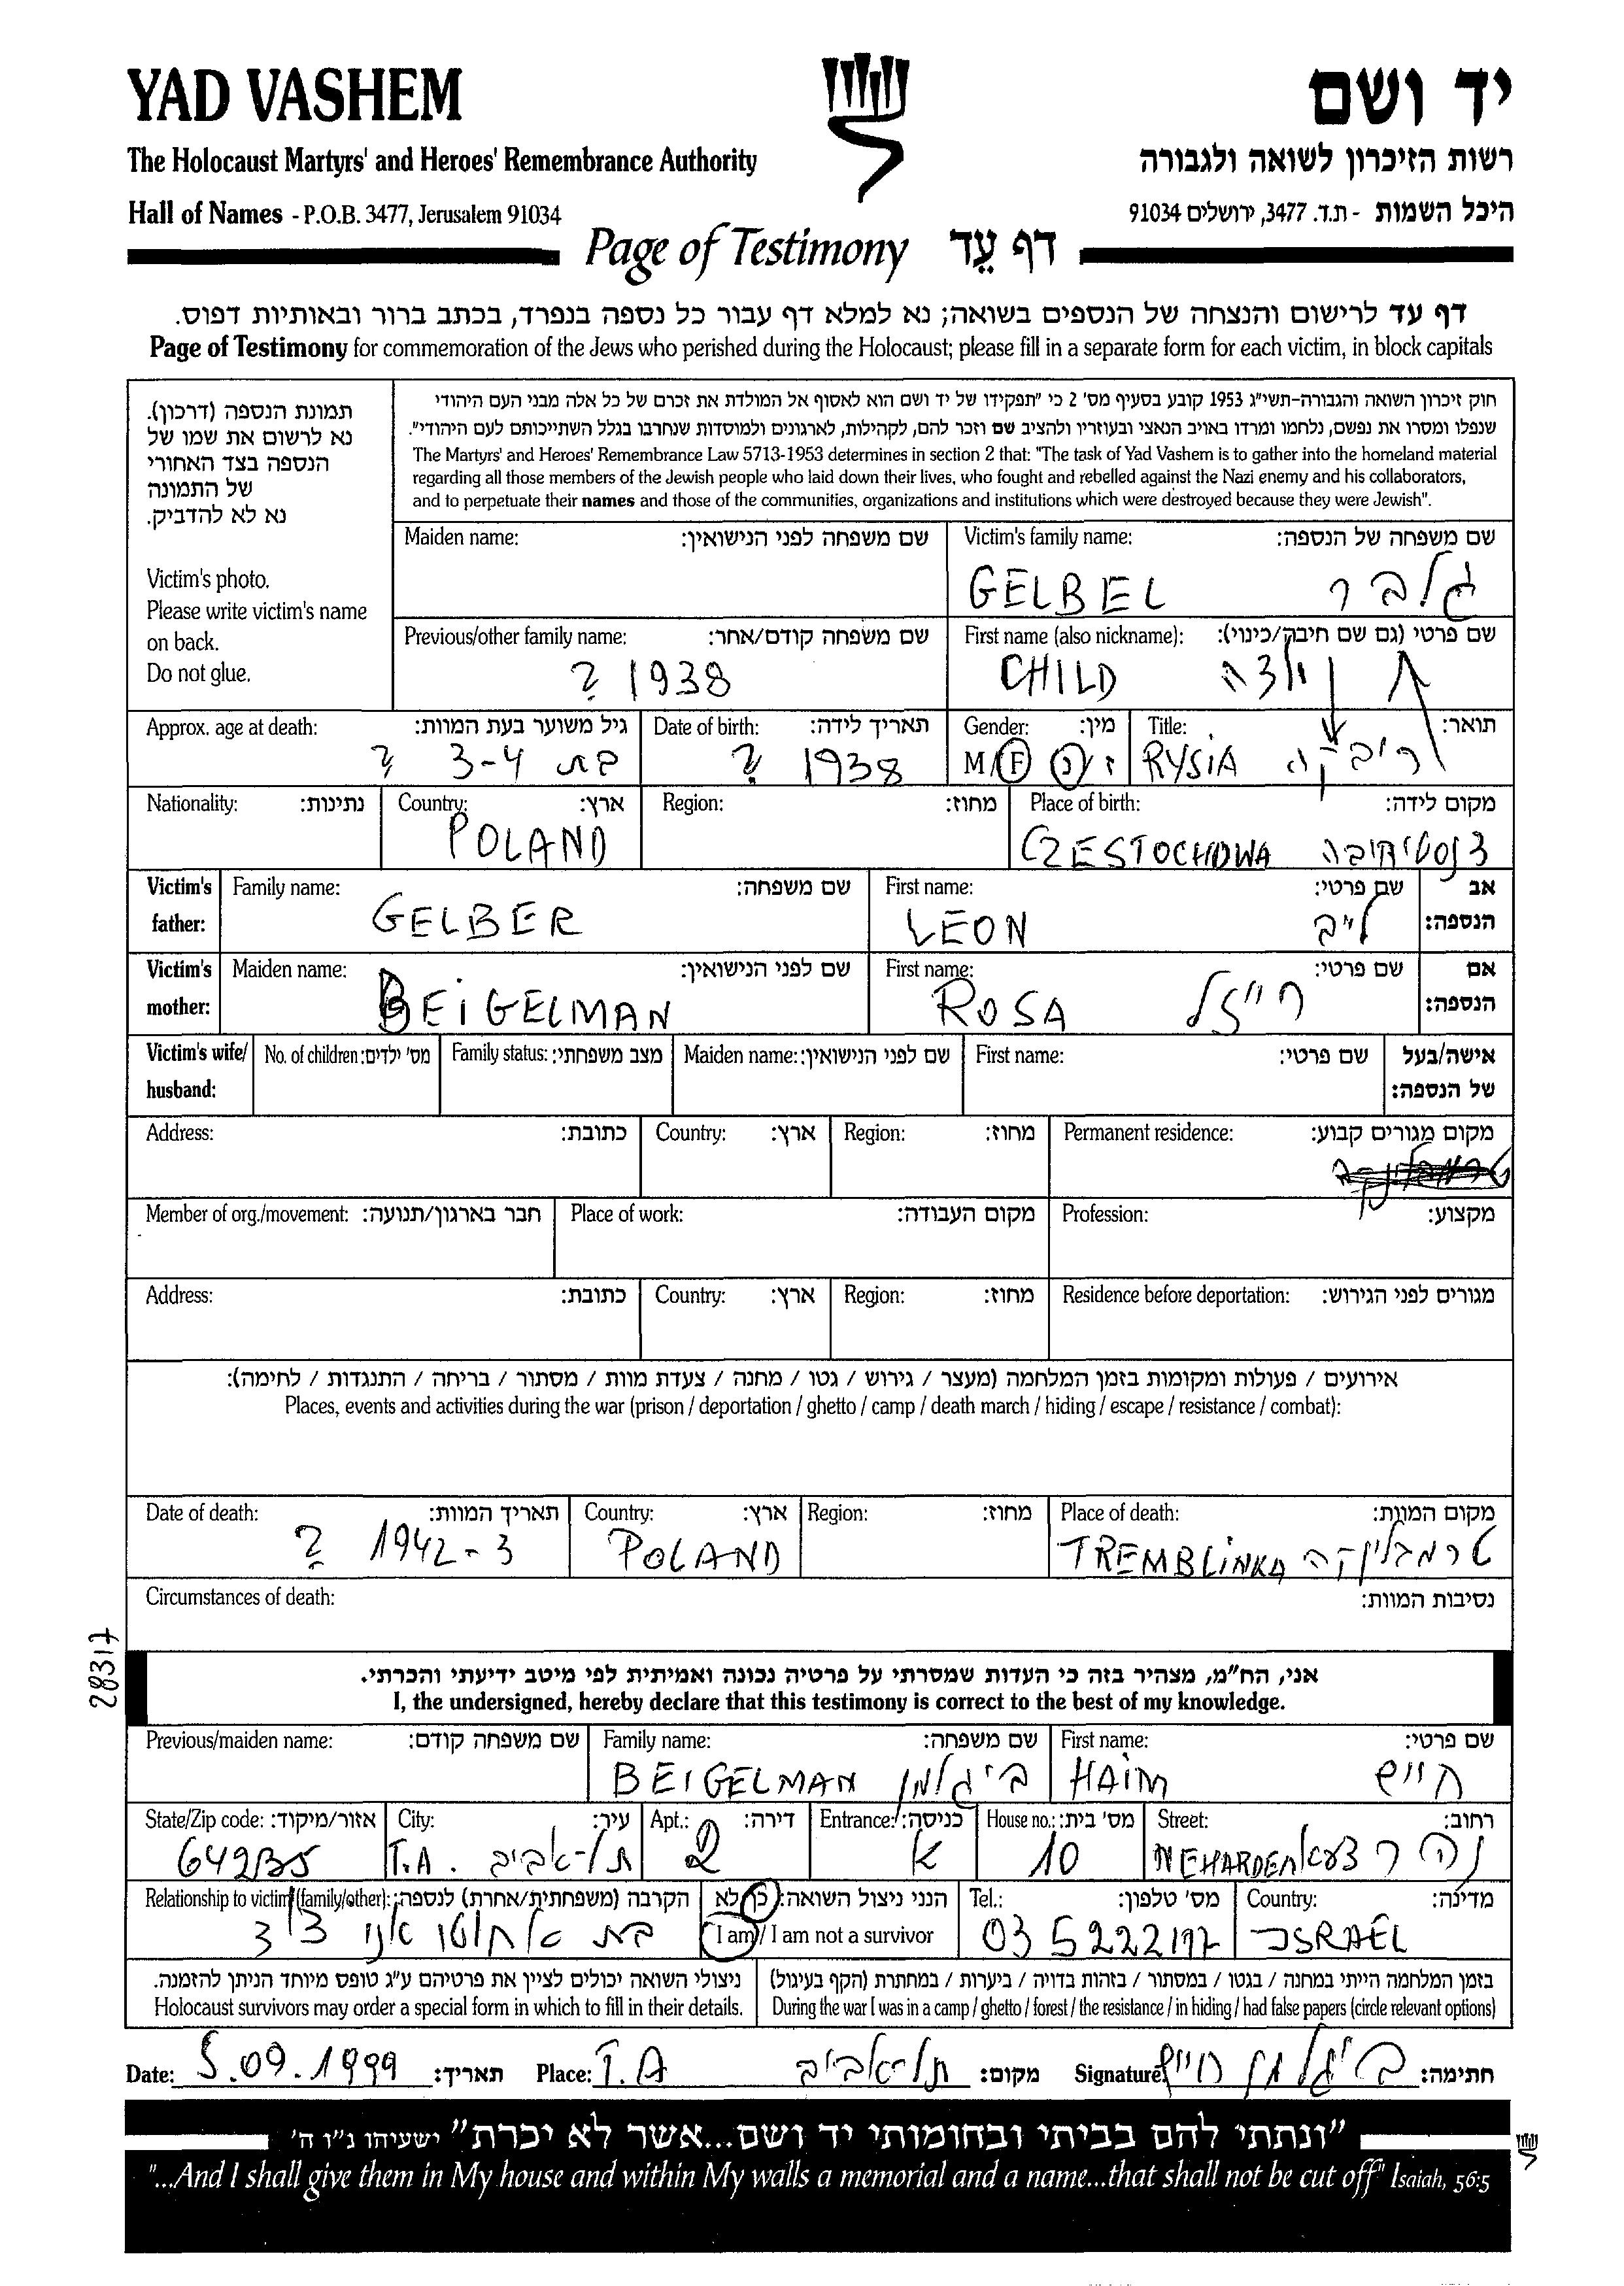 YAD VASHEM יד ושם
The Holocaust Martyrs' and Heroes' Remembrance Authority רשות הזיכרון לשואה ולגבורה
Hall of Names - P.O.B. 3477, Jerusalem 91034 היכל השמות - ת.ד. 3477, ירושלים 91034
Page of Testimony דף עֵד
דף עד לרישום והנצחה של הנספים בשואה; נא למלא דף עבור כל נספה בנפרד, בכתב ברור ובאותיות דפוס.
Page of Testimony for commemoration of the Jews who perished during the Holocaust; please fill in a separate form for each victim, in block capitals
תמונת הנספה (דרכון).
נא לרשום את שמו של
הנספה בצד האחורי
של התמונה
נא לא להדביק.
Victim's photo.
Please write victim's name
on back.
Do not glue.
חוק זיכרון השואה והגבורה-תשי"ג 1953 קובע בסעיף מס' 2 כי "תפקידו של יד ושם הוא לאסוף אל המולדת את זכרם של כל אלה מבני העם היהודי
שנפלו ומסרו את נפשם, נלחמו ומרדו באויב הנאצי ובעוזריו ולהציב שם וזכר להם, לקהילות, לארגונים ולמוסדות שנחרבו בגלל השתייכותם לעם היהודי".
The Martyrs' and Heroes' Remembrance Law 5713-1953 determines in section 2 that: "The task of Yad Vashem is to gather into the homeland material
regarding all those members of the Jewish people who laid down their lives, who fought and rebelled against the Nazi enemy and his collaborators,
and to perpetuate their names and those of the communities, organizations and institutions which were destroyed because they were Jewish".
Maiden name: שם משפחה לפני הנישואין: Victim's family name: שם משפחה של הנספה:
GELBEL גלבר
Previous/other family name: שם משפחה קודם/אחר: First name (also nickname): שם פרטי (גם שם חיבה/כינוי):
? 1938 CHILD ילדה
Approx. age at death: גיל משוער בעת המוות: Date of birth: תאריך לידה: Gender: מין: Title: תואר:
? 3-4 בת ? 1938 M/F ז/נ RYSIA ריבקה
Nationality: נתינות: Country: ארץ: Region: מחוז: Place of birth: מקום לידה:
POLAND CZESTOCHOWA צנסטיחובה
Victim's father: Family name: שם משפחה: First name: שם פרטי: אב הנספה:
GELBER LEON לייב
Victim's mother: Maiden name: שם לפני הנישואין: First name: שם פרטי: אם הנספה:
BEIGELMAN ROSA רייזל
Victim's wife/ husband: No. of children: מס' ילדים: Family status: מצב משפחתי: Maiden name: שם לפני הנישואין: First name: שם פרטי: אישה/בעל של הנספה:
Address: כתובת: Country: ארץ: Region: מחוז: Permanent residence: מקום מגורים קבוע:
Member of org./movement: חבר בארגון/תנועה: Place of work: מקום העבודה: Profession: מקצוע:
Address: כתובת: Country: ארץ: Region: מחוז: Residence before deportation: מגורים לפני הגירוש:
אירועים / פעולות ומקומות בזמן המלחמה (מעצר / גירוש / גטו / מחנה / צעדת מוות / מסתור / בריחה / התנגדות / לחימה):
Places, events and activities during the war (prison / deportation / ghetto / camp / death march / hiding / escape / resistance / combat):
Date of death: תאריך המוות: Country: ארץ: Region: מחוז: Place of death: מקום המוות:
? 1942-3 POLAND TREMBLINKA טרמבלינקה
Circumstances of death: נסיבות המוות:
28317
אני, הח"מ, מצהיר בזה כי העדות שמסרתי על פרטיה נכונה ואמיתית לפי מיטב ידיעתי והכרתי.
I, the undersigned, hereby declare that this testimony is correct to the best of my knowledge.
Previous/maiden name: שם משפחה קודם: Family name: שם משפחה: First name: שם פרטי:
BEIGELMAN ביגלמן HAIM חיים
State/Zip code: אזור/מיקוד: City: עיר: Apt.: דירה: Entrance: כניסה: House no.: מס' בית: Street: רחוב:
64235 T.A. תל-אביב 2 א 10 NEHARDEA נהרדעא
Relationship to victim (family/other): הקרבה (משפחתית/אחרת) לנספה: הנני ניצול השואה: כן/לא Tel.: מס' טלפון: Country: מדינה:
בת אחותו אני דוד I am / I am not a survivor 03 5222197 ISRAEL
ניצולי השואה יכולים לציין את פרטיהם ע"ג טופס מיוחד הניתן להזמנה. בזמן המלחמה הייתי במחנה / בגטו / במסתור / בזהות בדויה / ביערות / במחתרת (הקף בעיגול)
Holocaust survivors may order a special form in which to fill in their details. During the war I was in a camp / ghetto / forest / the resistance / in hiding / had false papers (circle relevant options)
Date: 5.09.1999 תאריך: Place: T.A תל-אביב מקום: Signature: ביגלמן חיים חתימה:
"ונתתי להם בביתי ובחומותי יד ושם...אשר לא יכרת" ישעיהו נ"ו ה'
"...And I shall give them in My house and within My walls a memorial and a name...that shall not be cut off" Isaiah, 56:5